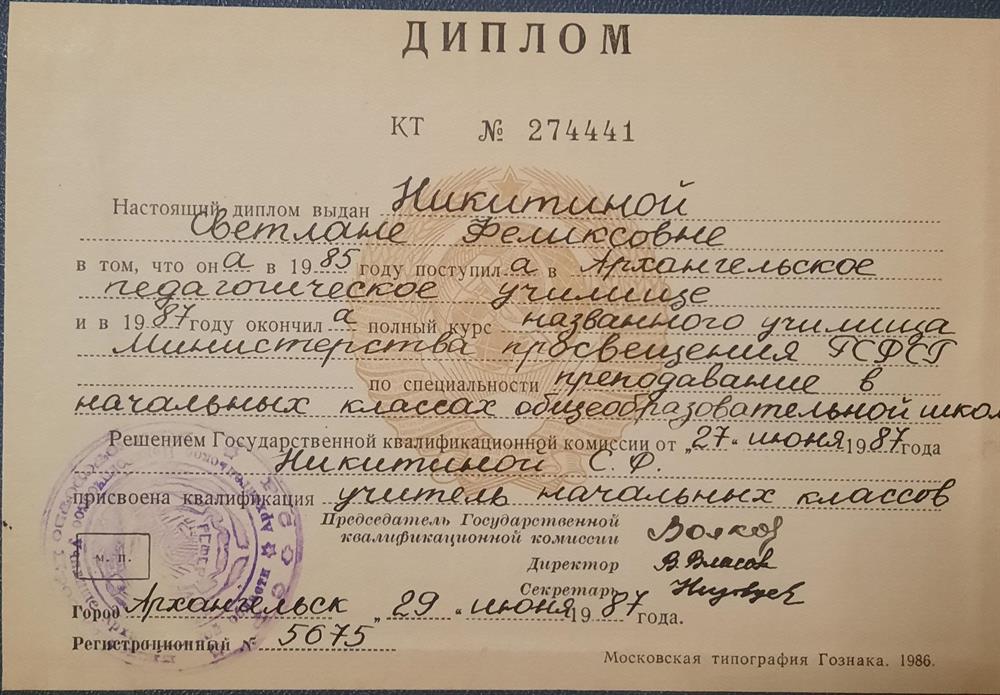 ДИПЛОМ
КТ № 274441
Настоящий диплом выдан Никитиной
Светлане Феликсовне
в том, что она в 1985 году поступила в Архангельское
педагогическое училище
и в 1987 году окончила полный курс названного училища
Министерства просвещения РСФСР
по специальности преподавание в
начальных классах общеобразовательной школ
Решением Государственной квалификационной комиссии от „27" июня 1987 года
Никитиной С. Ф.
присвоена квалификация учитель начальных классов
Председатель Государственной
квалификационной комиссии
Директор В. Власов
Секретарь
М. П.
Город Архангельск „29" июня 1987 года.
Регистрационный № 5675
Московская типография Гознака. 1986.